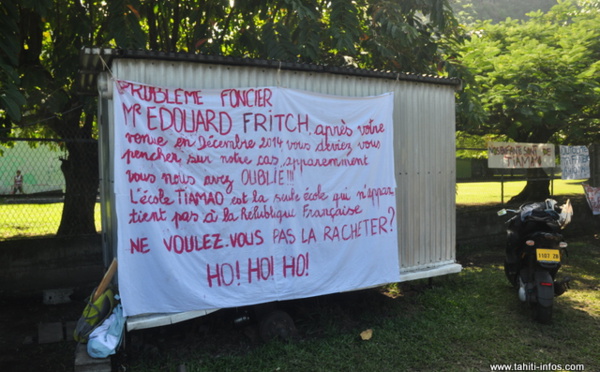 PROBLÈME FONCIER
Mr EDOUARD FRITCH, après votre
venue en Décembre 2014 vous deviez vous
pencher sur notre cas, apparemment
vous nous avez OUBLIÉ !!!
L'école TIAMAO est la seule école qui n'appar
tient pas à la République Française
NE VOULEZ-VOUS PAS LA RACHETER?
HO! HO! HO!
DE
TIAMAO
www.tahiti-infos.com